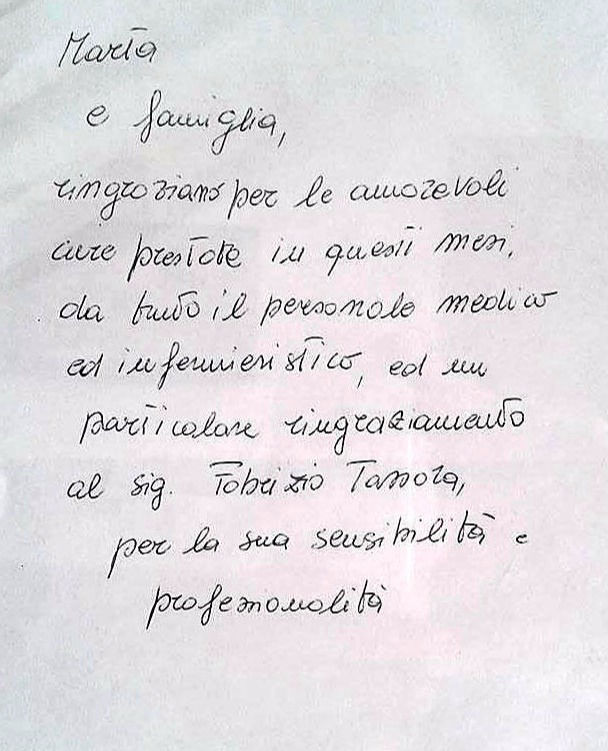 Marta
e famiglia,
ringraziano per le amorevoli
cure prestate in questi mesi,
da tutto il personale medico
ed infermieristico, ed un
particolare ringraziamento
al sig. Fabrizio Tassora,
per la sua sensibilità e
professionalità